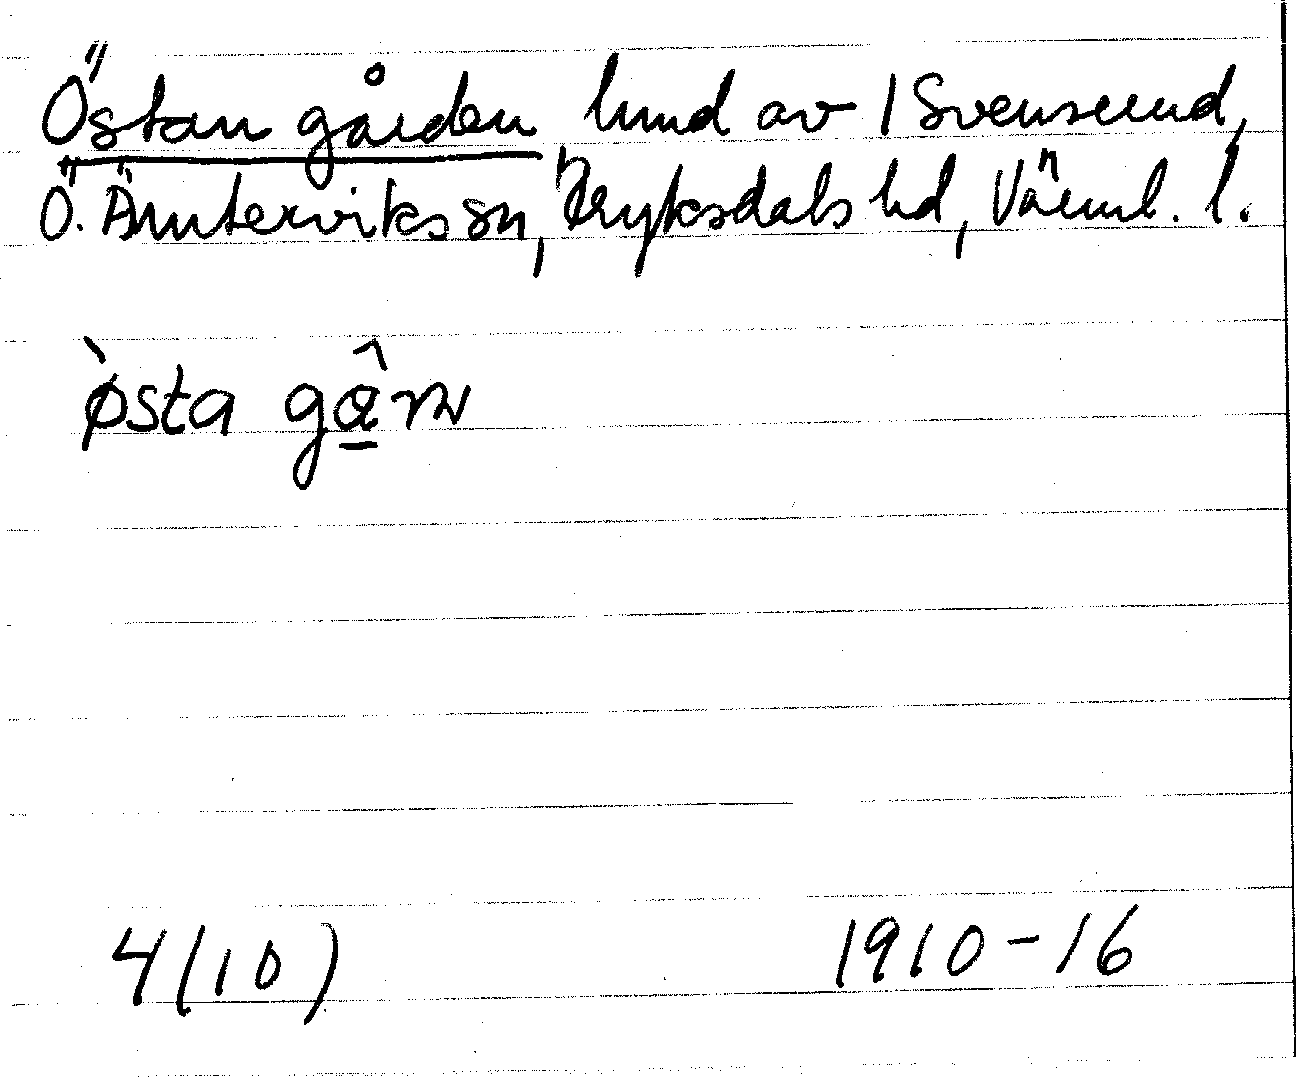 Östangården hmd av 1 Svenserud,
Ö. Ämterviks sn, Fryksdals hd, Värml. l.
ø̀sta gâ̱rn
4(10) 1910-16